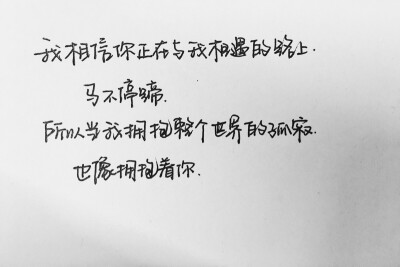 我相信你正在与我相遇的路上.
马不停蹄.
所以当我拥抱整个世界的孤寂.
也像拥抱着你.